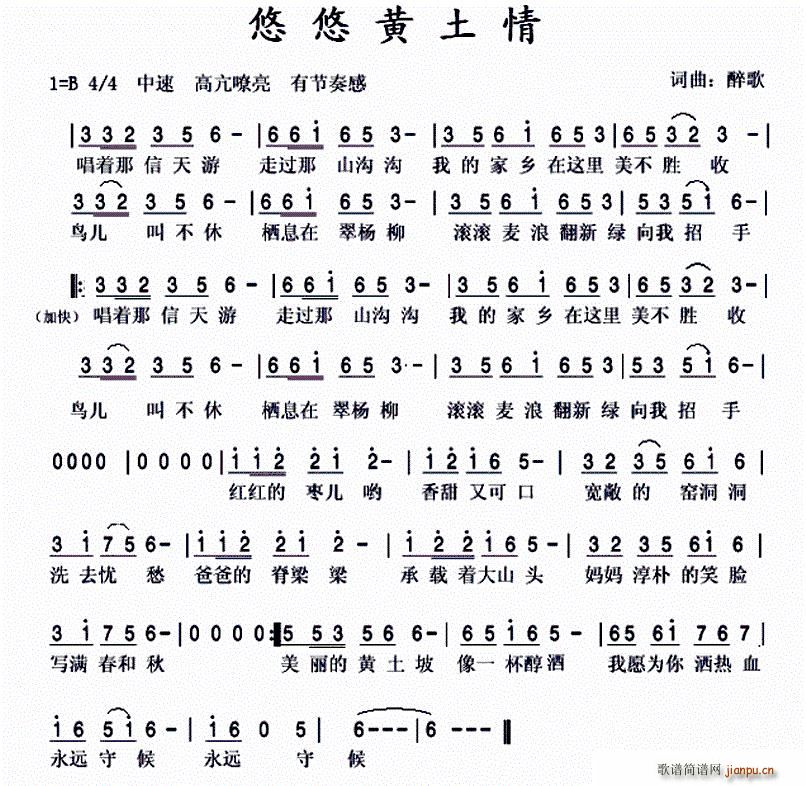 悠悠黄土情
1=B 4/4 中速 高亢嘹亮 有节奏感 词曲：醉歌
|3 3 2 3 5 6 -| 6 6 i 6 5 3-| 3 5 6 i 6 5 3 |6 5 3 2 3 -|
唱着那 信天游 走过那 山沟沟 我的家乡在这里 美不胜 收
3 3 2 3 5 6 -| 6 6 i 6 5 3-| 3 5 6 i 6 5 3 |5 3 5 i 6-|
鸟儿 叫不休 栖息在 翠杨柳 滚滚麦浪翻新绿向我招 手
|: 3 3 2 3 5 6 -| 6 6 i 6 5 3-| 3 5 6 i 6 5 3 |6 5 3 2 3 -|
（加快）唱着那信天游 走过那 山沟沟 我的家乡在这里美不胜 收
3 3 2 3 5 6 -| 6 6 i 6 5 3·-| 3 5 6 i 6 5 3 5 3 5 i 6-|
鸟儿 叫不休 栖息在 翠杨柳 滚滚麦浪翻新绿向我招 手
0000 |0 0 0 0| i i 2 2 i 2-| i 2 i 6 5-| 3 2 3 5 6 i 6 |
红红的 枣儿 哟 香甜又可口 宽敞的 窑洞洞
3 i 7 5 6-| i i 2 2 i 2 -| i 2 2 i 6 5| 3 2 3 5 6 i 6 |
洗去忧 愁 爸爸的 脊梁梁 承载着大山头 妈妈淳朴的笑脸
3 i 7 5 6-|0 0 0 0:| 5 5 3 5 6 6-| 6 5 i 6 5-| 6 5 6 i 7 6 7 |
写满春和秋 美丽的黄土坡 像一杯醇酒 我愿为你洒热血
i 6 5 i 6-| i 6 0 5 | 6---|6--‖
永远守 候 永远 守 候
歌谱简谱网 jianpu.cn